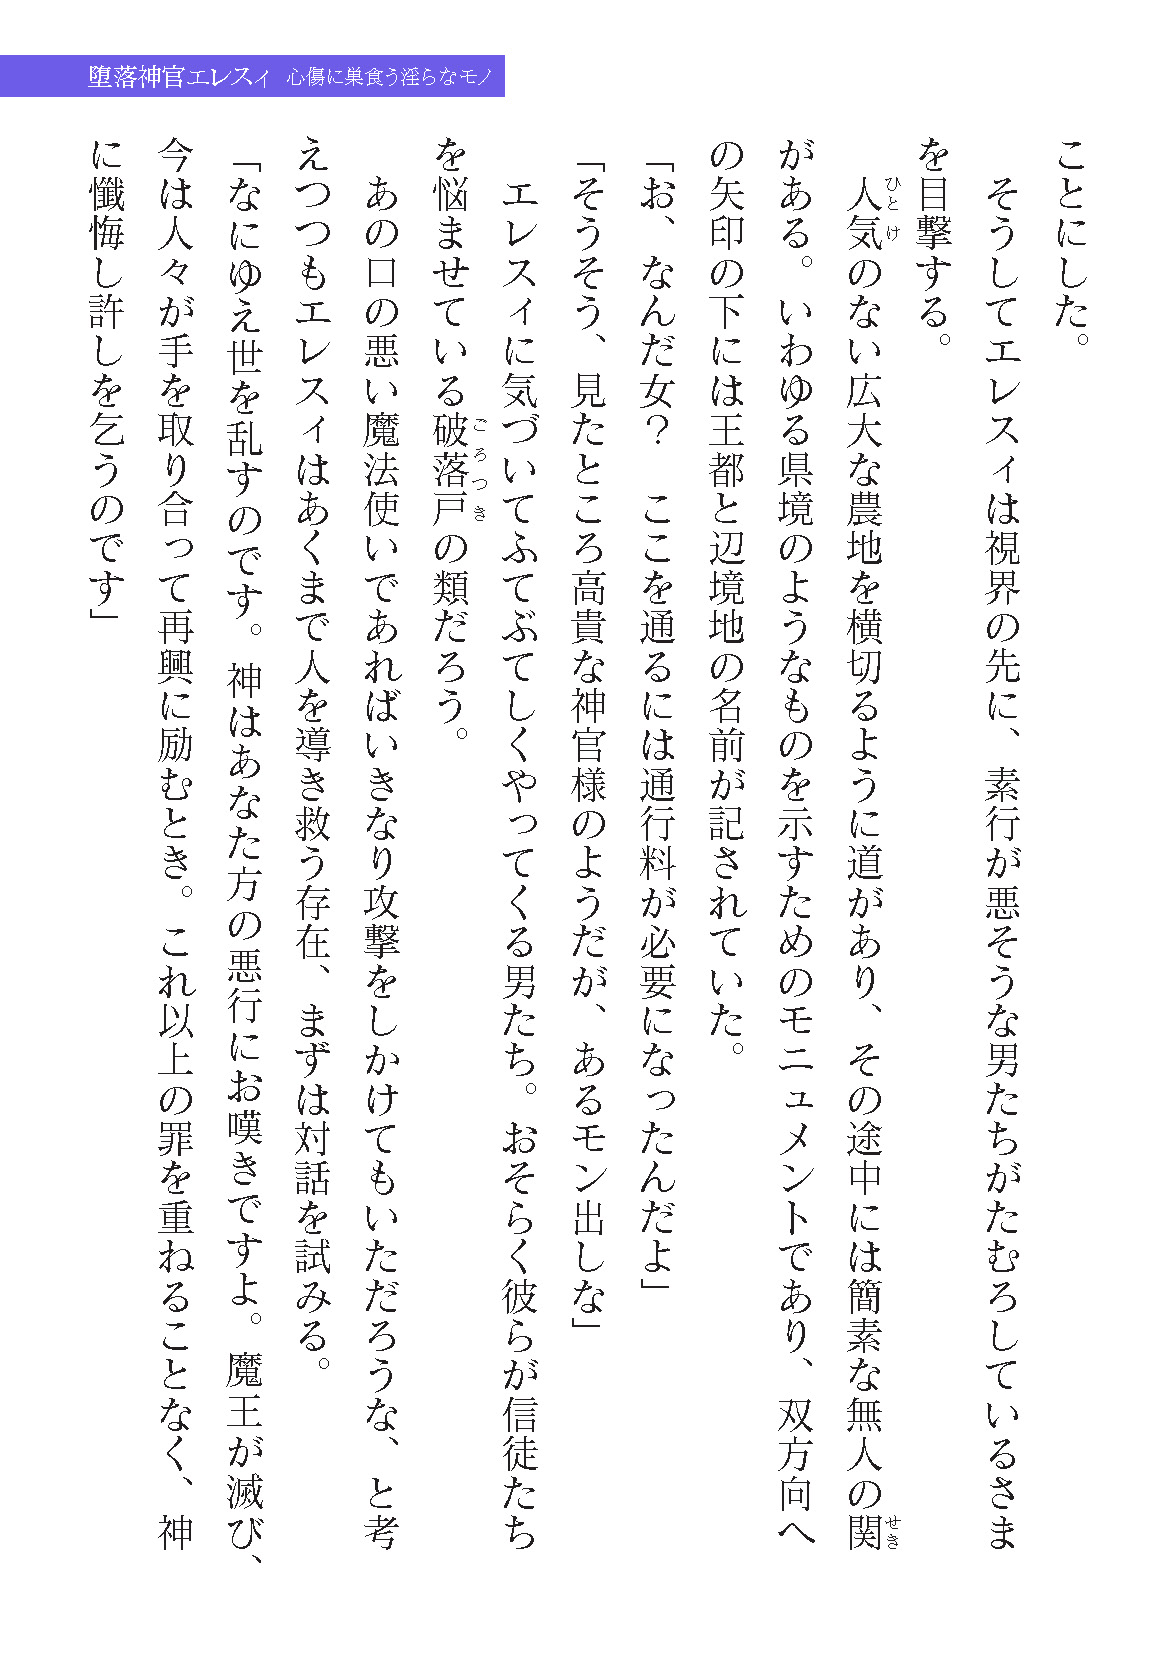 堕落神官エレスィ 心傷に巣食う淫らなモノ
ことにした。
　そうしてエレスィは視界の先に、素行が悪そうな男たちがたむろしているさま
を目撃する。
　人気のない広大な農地を横切るように道があり、その途中には簡素な無人の関
がある。いわゆる県境のようなものを示すためのモニュメントであり、双方向へ
の矢印の下には王都と辺境地の名前が記されていた。
「お、なんだ女？　ここを通るには通行料が必要になったんだよ」
「そうそう、見たところ高貴な神官様のようだが、あるモン出しな」
　エレスィに気づいてふてぶてしくやってくる男たち。おそらく彼らが信徒たち
を悩ませている破落戸の類だろう。
　あの口の悪い魔法使いであればいきなり攻撃をしかけてもいただろうな、と考
えつつもエレスィはあくまで人を導き救う存在、まずは対話を試みる。
「なにゆえ世を乱すのです。神はあなた方の悪行にお嘆きですよ。魔王が滅び、
今は人々が手を取り合って再興に励むとき。これ以上の罪を重ねることなく、神
に懺悔し許しを乞うのです」
ひとけ
せき
ごろつき